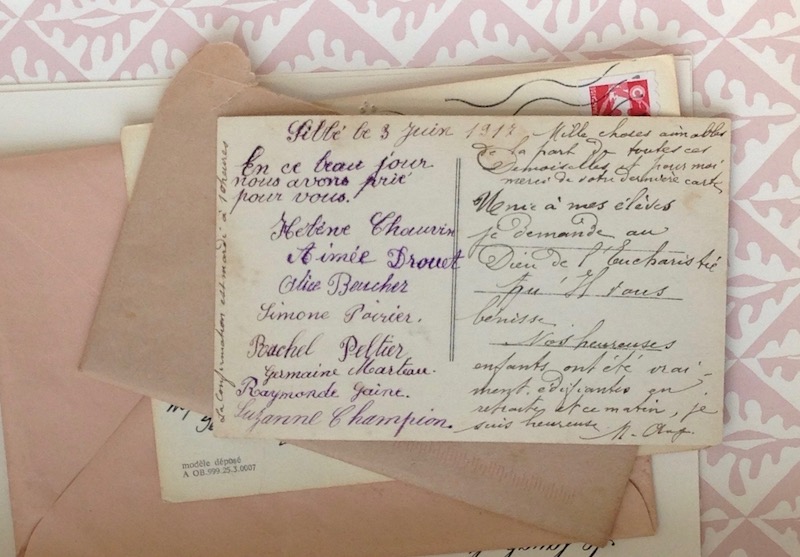 Sillé le 3 Juin 1917
En ce beau jour
nous avons prié
pour vous.
Hélène Chauvin
Aimée Drouet
Alice Boucher
Simone Poirier.
Rachel Peltier
Germaine Marteau.
Raymonde Gaine.
Suzanne Champion.
La Confirmation est mardi à heures
Mille choses aimables
de la part de toutes ces
Demoiselles et pour moi
merci de votre dernière carte
Unie à mes élèves
je demande au
Dieu de l'Eucharistie
qu'Il vous
bénisse.
Nos heureuses
enfants ont été vrai-
ment édifiantes en
retraite et ce matin, je
suis heureuse
modèle déposé
A OB.999.25.3.0007